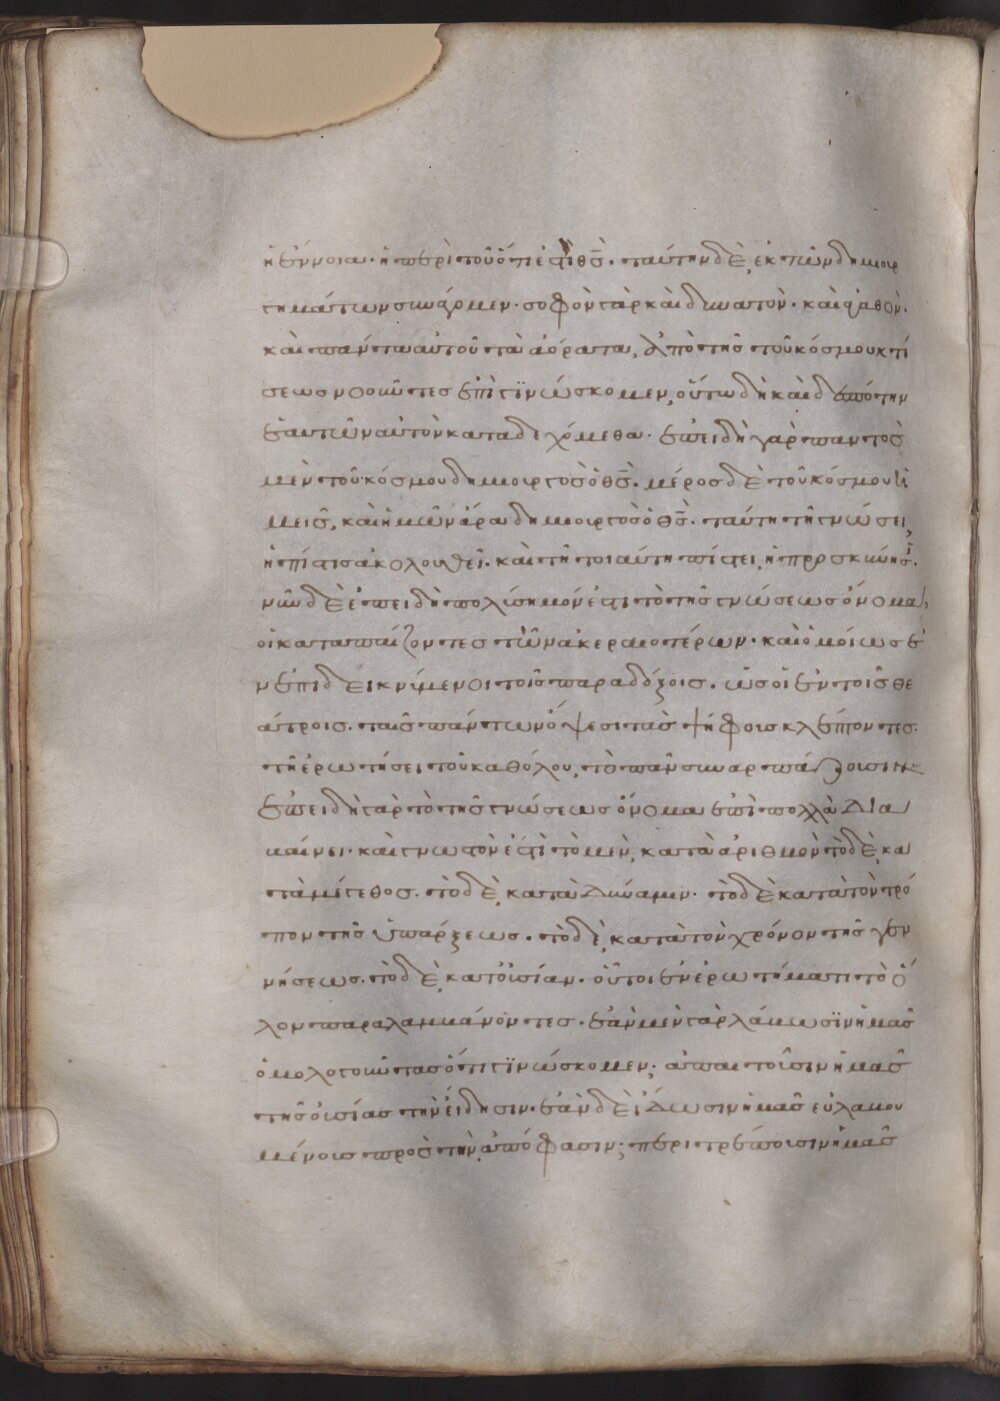 ἡ ἔννοια· ἡ περὶ τοῦ ὅτι ἐστὶ θς̄. ταύτην δὲ, ἐκ τῶν δημιουρ
γημάτων συνάγομεν· σοφὸν γὰρ καὶ δυνατὸν· καὶ ἀγαθὸν.
καὶ πάντα αὐτοῦ τὰ ἀόρατα, ἀπὸ τῆς τοῦ κόσμου κτί
σεως νοοῦντες ἐπιγϊνώσκομεν, οὕτω δὴ καὶ δεσπότην
ἑαυτῶν αὐτὸν καταδεχόμεθα· ἐπειδὴ γὰρ παντὸς
μὲν τοῦ κόσμου δημιουργὸς ὁ θς̄. μέρος δὲ τοῦ κόσμου ἡ
μεῖς, καὶ ἡμῶν ἄρα δημιουργὸς ὁ θς̄. ταύτη τῆ γνώσει,
ἡ πίστις ἀκολουθεῖ. καὶ τῆ τοιαύτη πίστει, ἡ προσκύνησϊς.
νῦν δὲ ἐπειδὴ πολύσημόν ἐστι τὸ τῆς γνώσεως ὄνομα,
οἱ καταπαίζοντες τῶν ἀκεραιοτέρων· καὶ ὁμοίως ἐ
νεπιδεικνύμενοι τοῖς παραδόξοις. ὡς οἱ ἐν τοῖς θε
άτροις. ταῖς πάντων ὄψεσι τὰς ψήφους κλέπτοντες.
τῆ ἐρωτήσει τοῦ καθόλου, τὸ πᾶν συναρπάζουσιν·
ἐπειδὴ γὰρ τὸ τῆς γνώσεως ὄνομα ἐπὶ πολλὰ δια
βαίνει· καὶ γνωστὸν ἐστὶ τὸ μὲν, κατὰ ἀριθμὸν τὸ δὲ, κα
τὰ μέγεθος. τὸ δὲ, κατὰ δύναμιν· τὸ δὲ κατὰ τὸν τρό
πον τῆς ὑπάρξεως. τὸ δὲ, κατὰ τὸν χρόνον τῆς γεν
νήσεως. τὸ δὲ, κατ' οὐσίαν. οὗτοι ἐν ἐρωτήματι τὸ ὅ
λον παραλαμβάνοντες. ἐὰν μὲν γὰρ λάβωσϊν ἡμᾶς
ὁμολογοῦντας ὅτι γϊνώσκομεν; ἀπαιτοῦσιν ἡμᾶς
τῆς οὐσίας τὴν εἴδησιν. ἐὰν δὲ ἴδωσιν ἡμᾶς εὐλαβου
μένους πρὸς τὴν ἀπόφασιν; περιτρέπουσιν ἡμᾶς